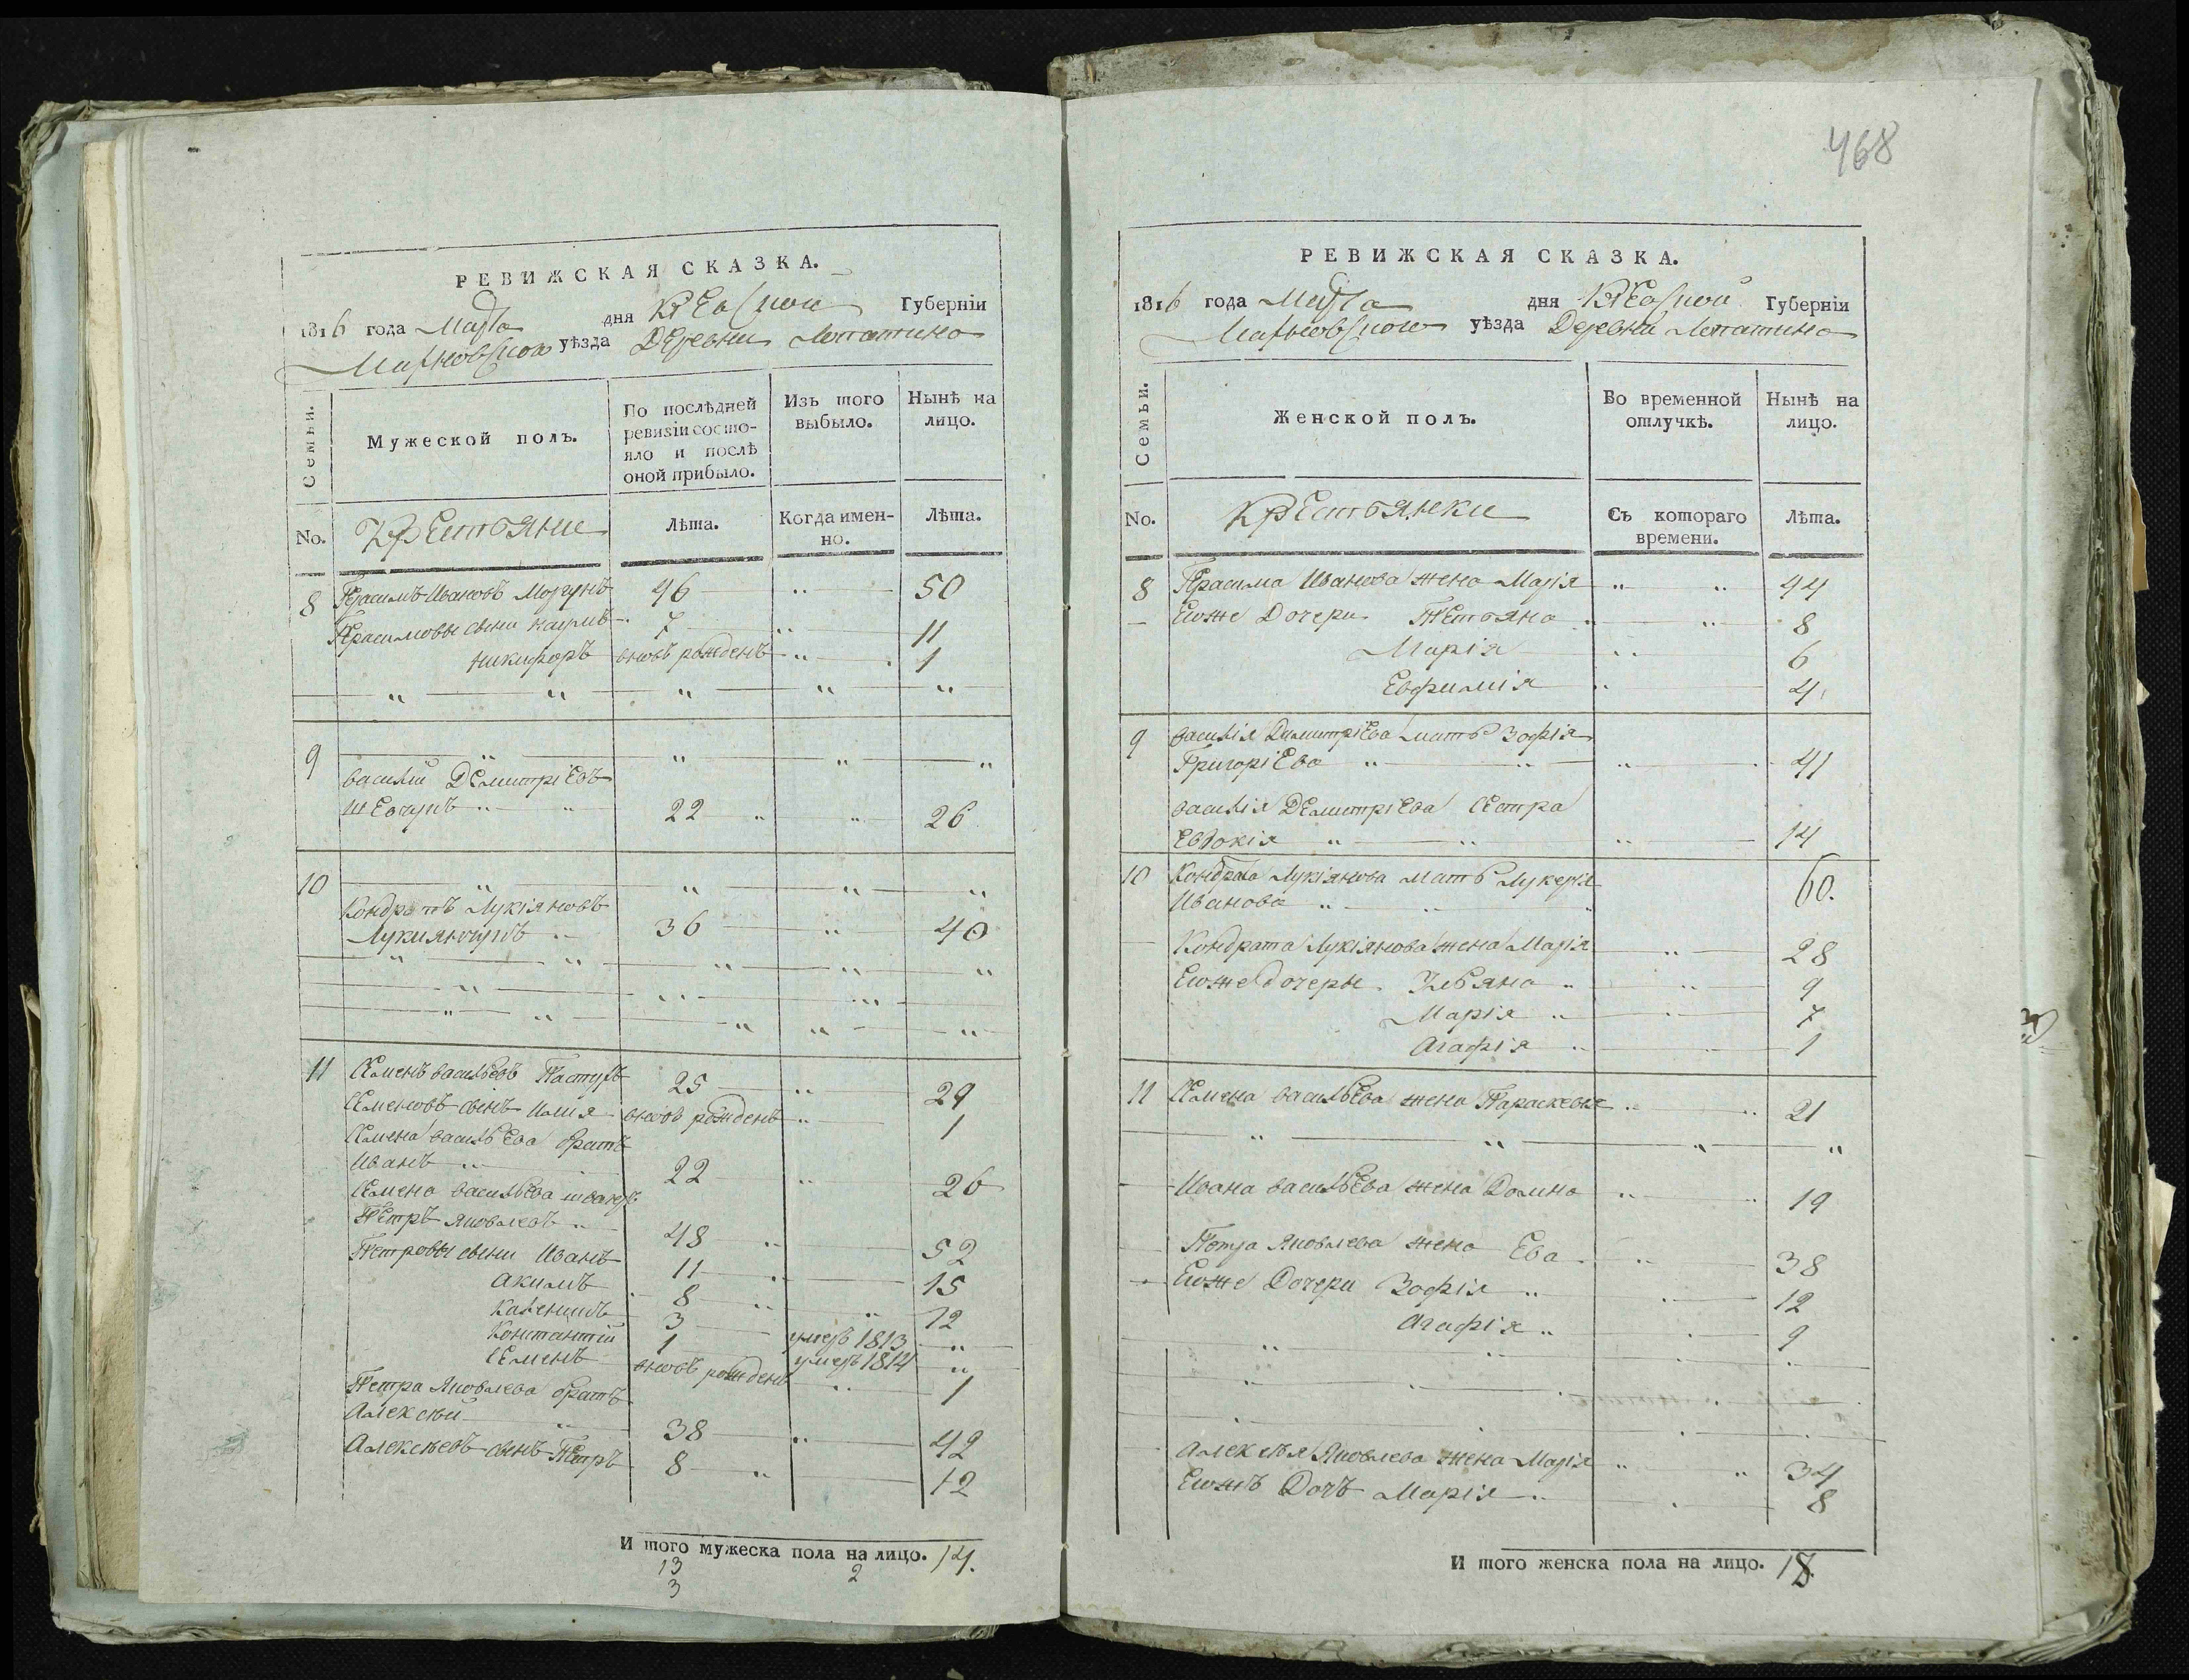 468
РЕВИЖСКАЯ СКАЗКА.
1816 года Марта дня Киевской Губерніи
уѣзда Деревни Лопатина
Семьи.
Мужеской полъ.
По послѣдней ревизіи состояло и послѣ оной прибыло.
Изъ того выбыло.
Нынѣ на лицо.
No. Крестьяне Лѣта. Когда именно. Лѣта.
8 Герасимъ Ивановъ Могунъ 46 50
Герасимовы сыни 7 11
Никифоръ вновь рожденъ 1
9
Василій Демитріевъ
Шевчукъ 22 26
10
Кондратъ Лукіяновъ
Лукиянчукъ 36 40
11 Семенъ Васильевъ Пастухъ 25 29
Семеновъ сынъ Илия вновь рожденъ 1
Семена Васильева братъ
Иванъ 22 26
Семена Васильева швагръ
Петръ Яковлевъ 48 52
Петровы сыни Иванъ 11 15
Акимъ 8 12
3 умеръ 1813
1 умеръ 1814
Семенъ вновь рожденъ 1
Петра Яковлева братъ
Алексѣй 38 42
Алексѣевъ сынъ Петръ 8 12
И того мужеска пола на лицо. 14.
13 2
3
РЕВИЖСКАЯ СКАЗКА.
1816 года Марта дня Киевской Губерніи
уѣзда Деревни Лопатина
Семьи.
Женской полъ.
Во временной отлучкѣ.
Нынѣ на лицо.
No. Крестьянки Съ котораго времени. Лѣта.
8 Герасима Иванова жена Марія 44
Егоже Дочери Тетьяна 8
Марія 6
Евфимія 4
9 Василія Димитріева мать Зофія
Григоріева 41
Василія Демитріева Сестра
Евдокія 14
10 Кондрата Лукіянова мать Лукерія
Иванова 60.
Кондрата Лукіянова жена Марія 28
Егоже дочеры Ульяна 9
Марія 7
Агафія 1
11 Семена Васильева жена Параскевія 21
Ивана Васильева жена Домна 19
Петра Яковлева жена Ева 38
Егоже Дочери Зофія 12
Агафія 9
Алексѣя Яковлева жена Марія 34
Егожъ Дочъ Марія 8
И того женска пола на лицо. 18.